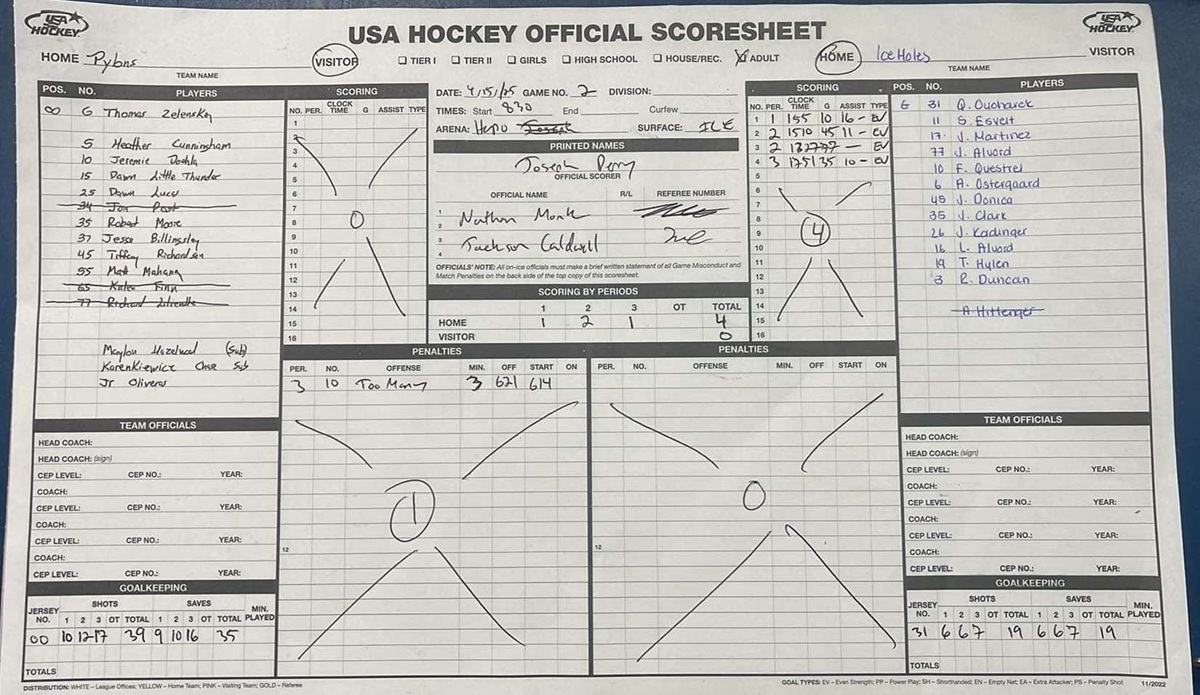 USA HOCKEY
USA HOCKEY OFFICIAL SCORESHEET
USA HOCKEY
HOME Pylons VISITOR
TEAM NAME
☐ TIER I ☐ TIER II ☐ GIRLS ☐ HIGH SCHOOL ☐ HOUSE/REC. ☒ ADULT
HOME Ice Holes VISITOR
TEAM NAME
POS. NO. PLAYERS
00 G Thomas Zelensky
5 Heather Cunningham
10 Jeremie
15 Dawn Little Thunder
25 Dawn Lucy
34 Jon
35 Robert Moore
37 Jesse Billingsley
45 Tiffany Richardson
55 Matt Mahana
65 Kalen Finn
77 Richard
Maylon Hazelwood (Sub)
KarenKiewicz Chase Sub
Jr Oliveras
TEAM OFFICIALS
HEAD COACH:
HEAD COACH: (sign)
CEP LEVEL: CEP NO.: YEAR:
COACH:
CEP LEVEL: CEP NO.: YEAR:
COACH:
CEP LEVEL: CEP NO.: YEAR:
COACH:
CEP LEVEL: CEP NO.: YEAR:
GOALKEEPING
JERSEY NO. SHOTS SAVES MIN. PLAYED
1 2 3 OT TOTAL 1 2 3 OT TOTAL
00 10 12 17 39 9 10 16 35
TOTALS
SCORING
NO. PER. CLOCK TIME G ASSIST TYPE
1
2
3
4
5
6
7
8 0
9
10
11
12
13
14
15
16
DATE: 4/15/25 GAME NO. 2 DIVISION:
TIMES: Start 830 End Curfew
ARENA: SURFACE: ICE
PRINTED NAMES
Joseph Perry
OFFICIAL SCORER
OFFICIAL NAME R/L REFEREE NUMBER
1
2 Nathan Monk
3 Jackson Caldwell
4
OFFICIALS' NOTE: All on-ice officials must make a brief written statement of all Game Misconduct and
Match Penalties on the back side of the top copy of this scoresheet.
SCORING BY PERIODS
1 2 3 OT TOTAL
HOME 1 2 1 4
VISITOR 0
SCORING
NO. PER. CLOCK TIME G ASSIST TYPE
1 1 155 10 16 - EV
2 2 1510 45 11 - EV
3 2 1327 77 - EV
4 3 1251 35 10 - EV
5
6
7
8
9 4
10
11
12
13
14
15
16
PENALTIES
PER. NO. OFFENSE MIN. OFF START ON
3 10 Too Many 3 621 614
1
12
PENALTIES
PER. NO. OFFENSE MIN. OFF START ON
0
12
POS. NO. PLAYERS
G 31 Q. Oucharek
11 S. Esveit
17 J. Martinez
77 J. Alvord
10 F. Questrel
6 A. Ostergaard
45 J. Donica
35 J. Clark
26 J. Kadinger
16 L. Alvord
19 T. Hylen
3 R. Duncan
A Hittenger
TEAM OFFICIALS
HEAD COACH:
HEAD COACH: (sign)
CEP LEVEL: CEP NO.: YEAR:
COACH:
CEP LEVEL: CEP NO.: YEAR:
COACH:
CEP LEVEL: CEP NO.: YEAR:
COACH:
CEP LEVEL: CEP NO.: YEAR:
GOALKEEPING
JERSEY NO. SHOTS SAVES MIN. PLAYED
1 2 3 OT TOTAL 1 2 3 OT TOTAL
31 6 6 7 19 6 6 7 19
TOTALS
DISTRIBUTION: WHITE – League Offices; YELLOW – Home Team; PINK – Visiting Team; GOLD – Referee
GOAL TYPES: EV – Even Strength; PP – Power Play; SH – Shorthanded; EN – Empty Net; EA – Extra Attacker; PS – Penalty Shot 11/2022